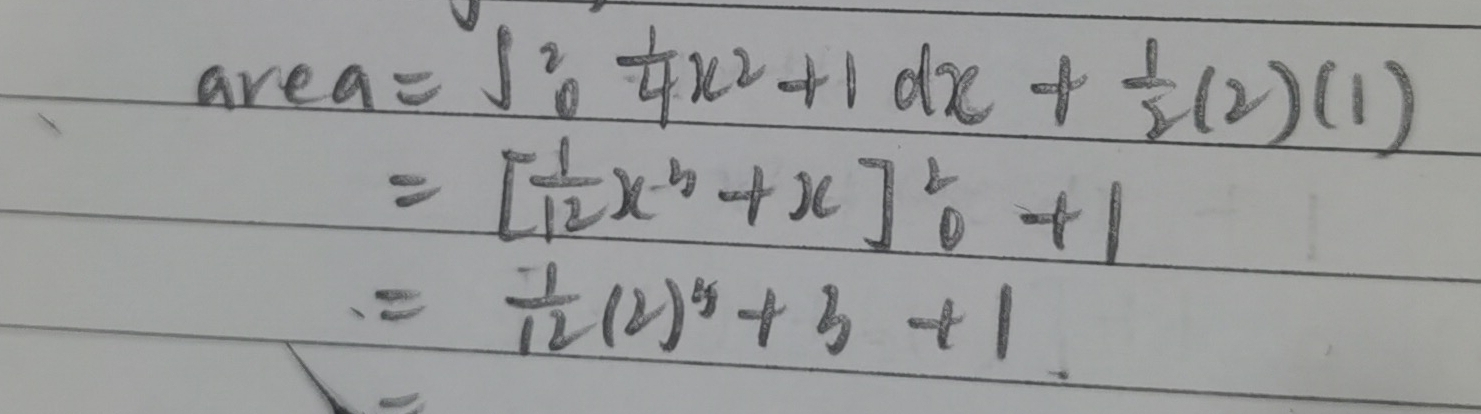 area = ∫²₀ 1/4 x² + 1 dx + 1/2 (2)(1)
= [1/12 x³ + x]²₀ + 1
= 1/12 (2)³ + 3 + 1
=